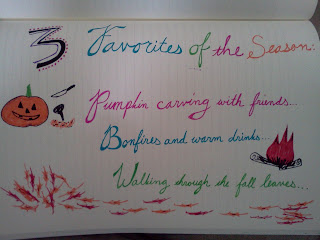 3 Favorites of the Season:
Pumpkin carving with friends...
Bonfires and warm drinks...
Walking through the fall leaves...